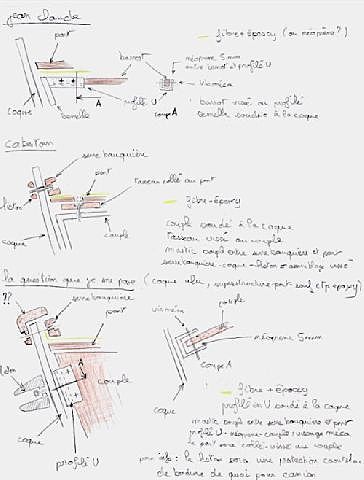 jean claude
fibre + époxy (ou néoprène?)
pont
barrot
néoprène 5mm
entre barrot et profilé U
visserie
A
profilé U
coupe A
coque
semelle
barrot vissé au profilé
semelle soudée à la coque
Cabestan
serre bauquière
pont
tasseau collé au pont
fibre + époxy
liston
coque
couple
couple soudé à la coque
tasseau vissé au couple
mastic souple entre serre bauquière et pont
serre bauquière - coque - liston = assemblage vissé
la question que je me pose (coque alu, superstructure pont
??
serre bauquière
pont
visserie
couple
néoprène 5mm
coupe A
A
couple
liston
coque
profilé U
coque
fibre + époxy
profilé en U soudé à la coque
mastic souple entre serre bauquière et pont
profilé U - néoprène - couple: vissage
le pont sera collé - vissé au couple
pour info: le liston sera une protection
de bordure de quai pour camion